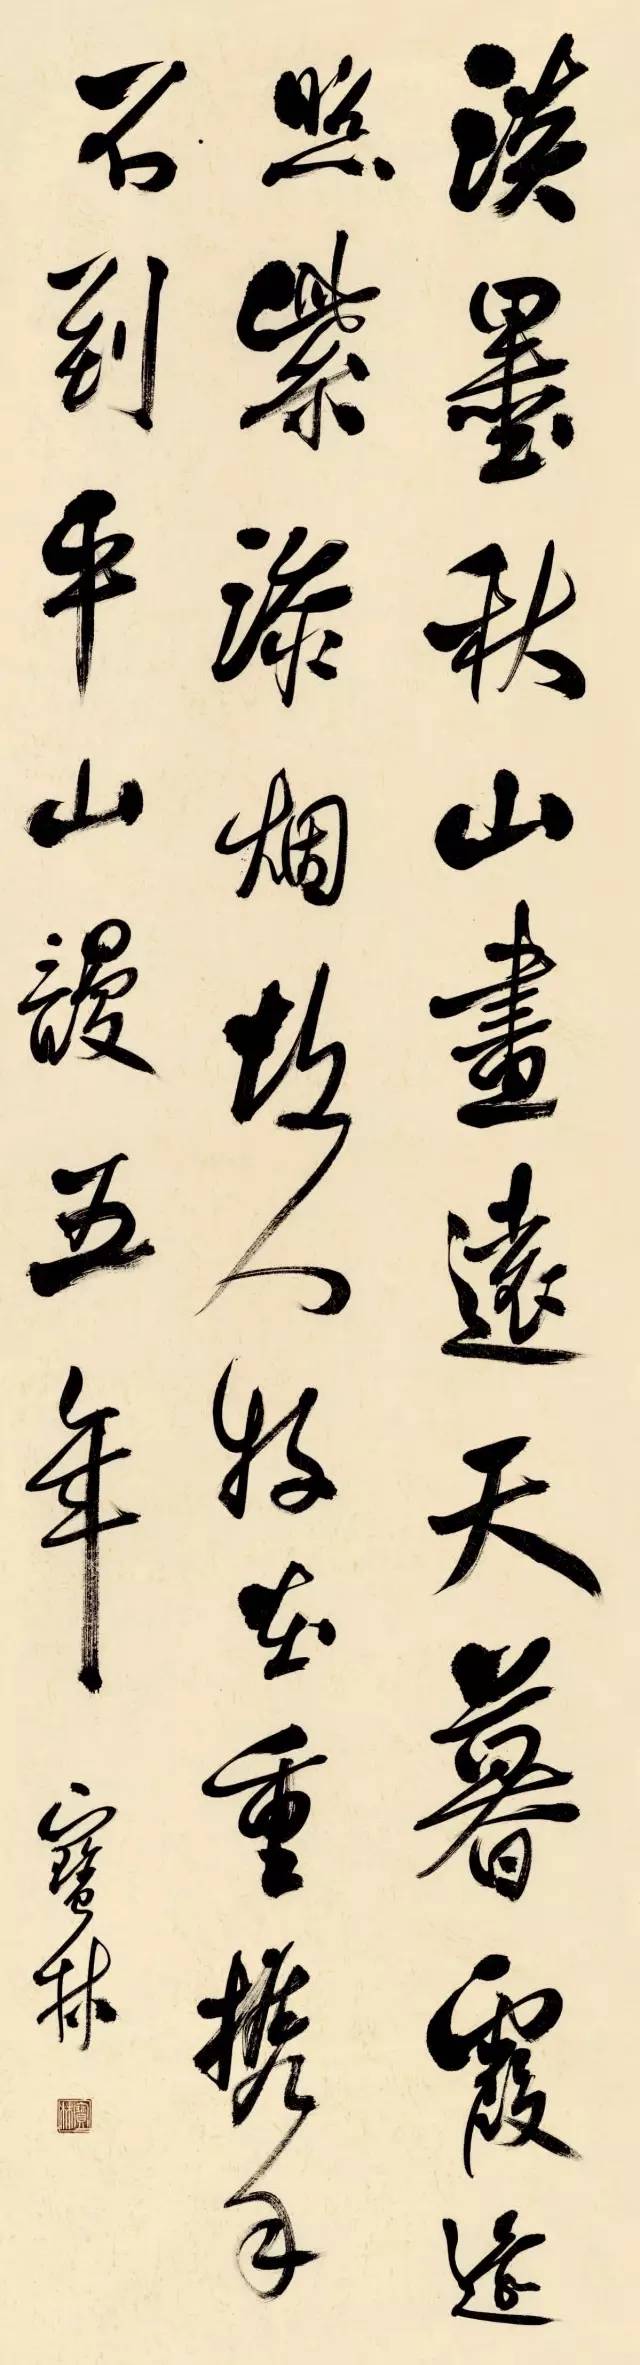 淡墨秋山畫遠天暮霞還
照紫添烟故人好在重携手
不到平山謾五年
寶林